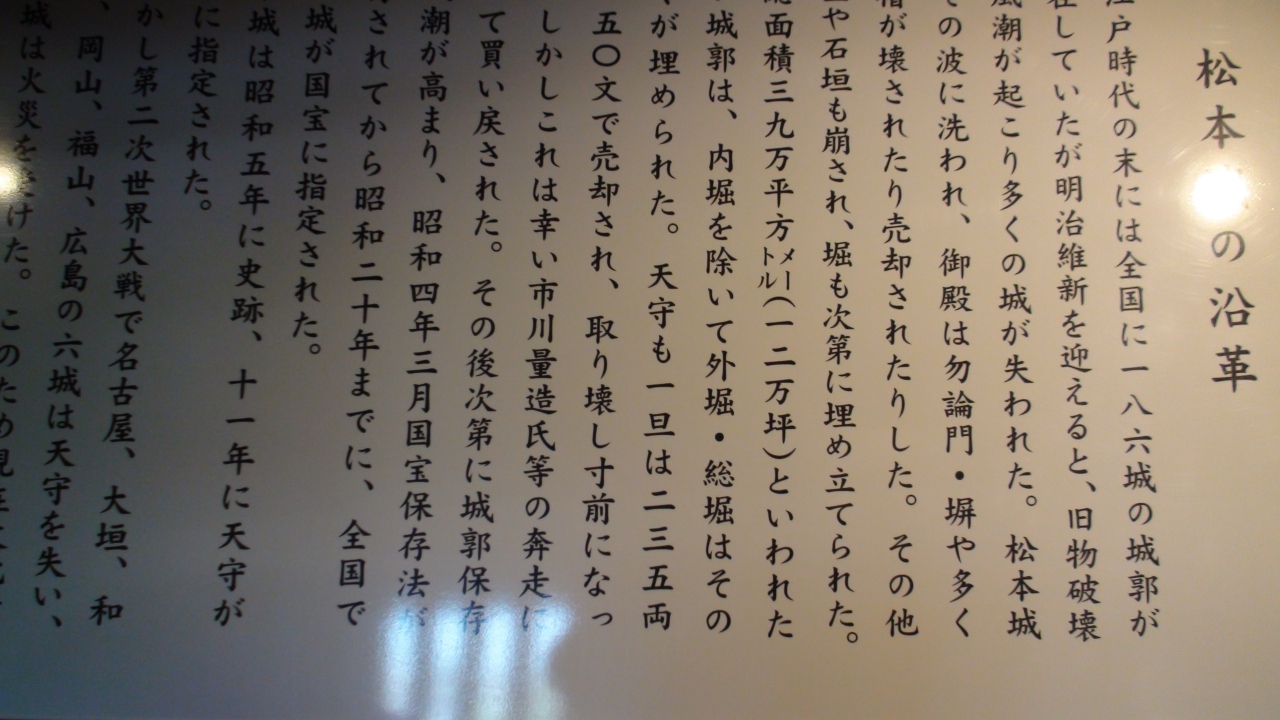 松本の沿革
江戸時代の末には全国に一八六城の城郭が
在していたが明治維新を迎えると、旧物破壊
風潮が起こり多くの城が失われた。松本城
その波に洗われ、御殿は勿論門・塀や多く
が壊されたり売却されたりした。その他
や石垣も崩され、堀も次第に埋め立てられた。
総面積三九万平方メートル(一二万坪)といわれた
城郭は、内堀を除いて外堀・総堀はその
が埋められた。天守も一旦は二三五両
五〇文で売却され、取り壊し寸前になっ
しかしこれは幸い市川量造氏等の奔走に
て買い戻された。その後次第に城郭保存
潮が高まり、昭和四年三月国宝保存法が
されてから昭和二十年までに、全国で
城が国宝に指定された。
城は昭和五年に史跡、十一年に天守が
に指定された。
かし第二次世界大戦で名古屋、大垣、和
、岡山、福山、広島の六城は天守を失い、
城は火災をうけた。このため現在